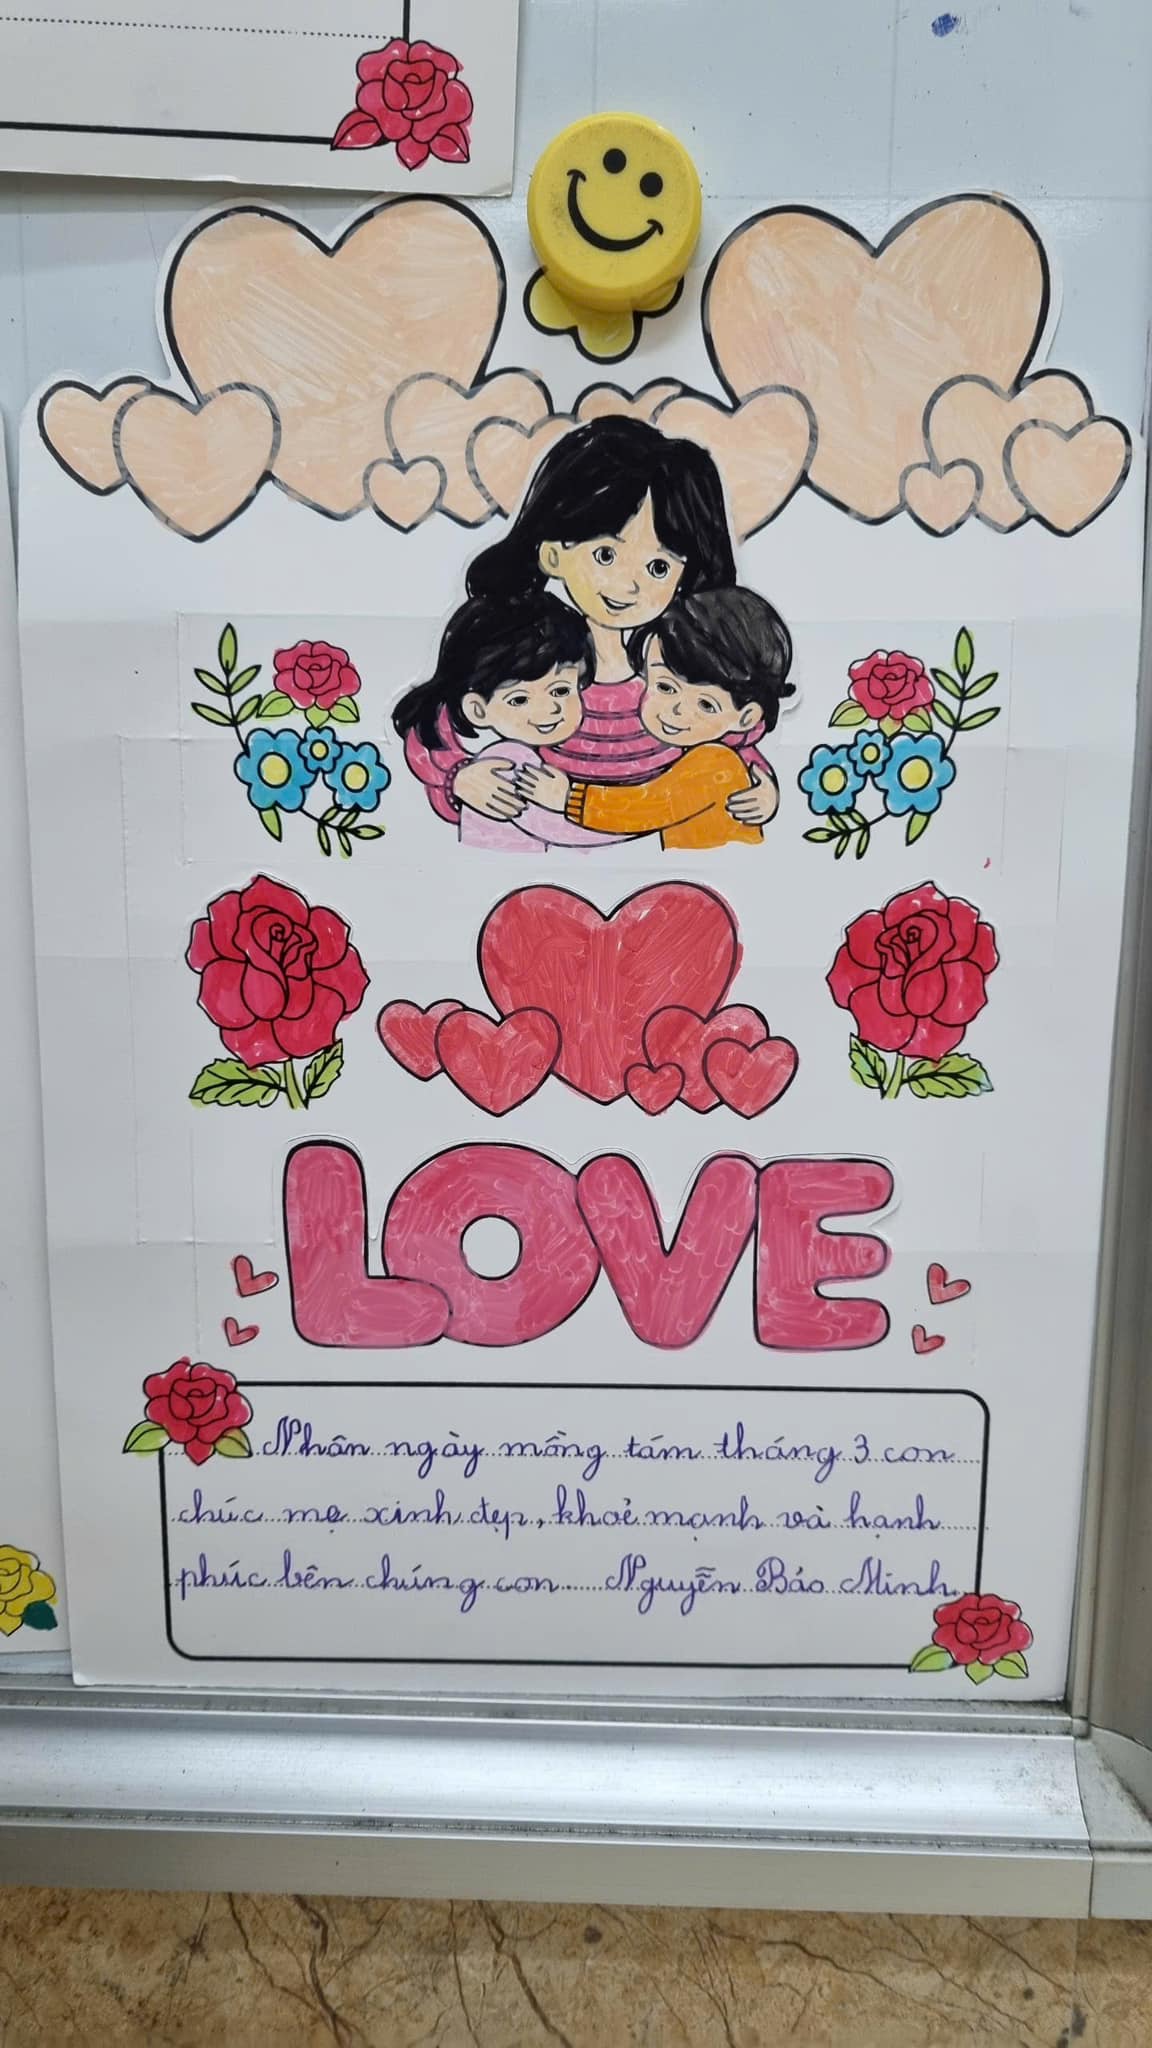 LOVE
Nhân ngày mồng tám tháng 3 con
chúc mẹ xinh đẹp, khoẻ mạnh và hạnh
phúc bên chúng con Nguyễn Bảo Minh